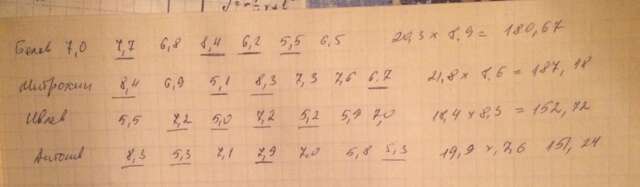 Белов 7,0 7,7 6,8 8,4 6,2 5,5 6,5 20,3 x 8,9 = 180,67
Митрохин 8,4 6,9 5,1 8,3 7,3 7,6 6,7 21,8 x 8,6 = 187,48
Ивлев 5,5 7,2 5,0 7,2 5,2 5,9 7,0 18,4 x 8,3 = 152,72
8,3 5,3 7,1 7,9 7,0 5,8 5,3 19,9 x 7,6 151,24